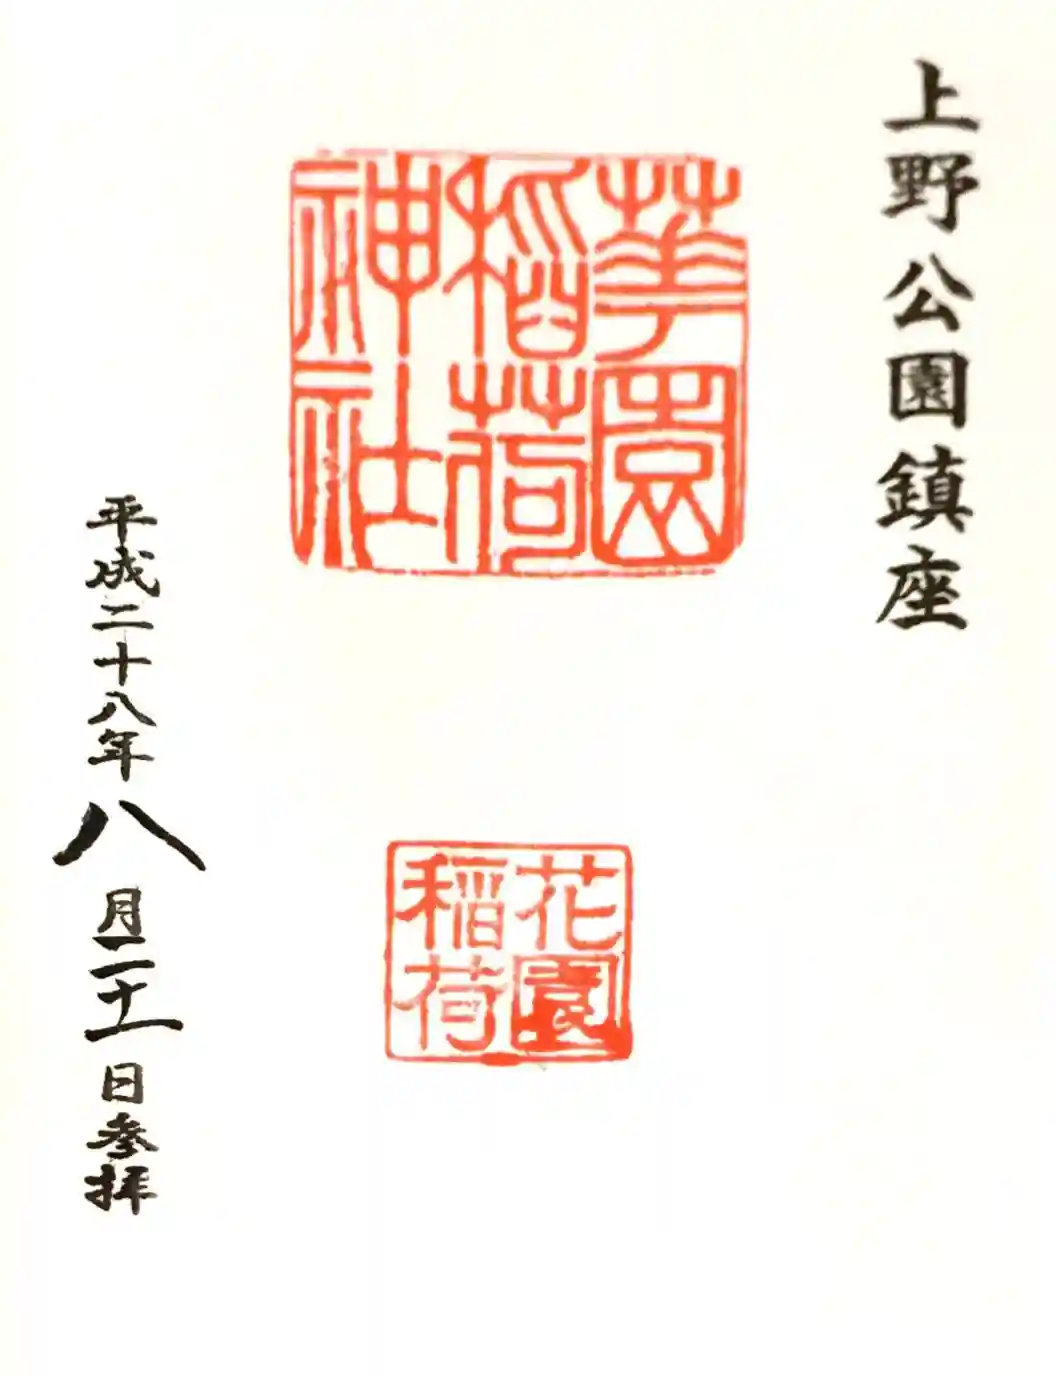 上野公園鎮座
華園
稻荷
神社
花園
稲荷
平成二十八年八月二十一日参拝